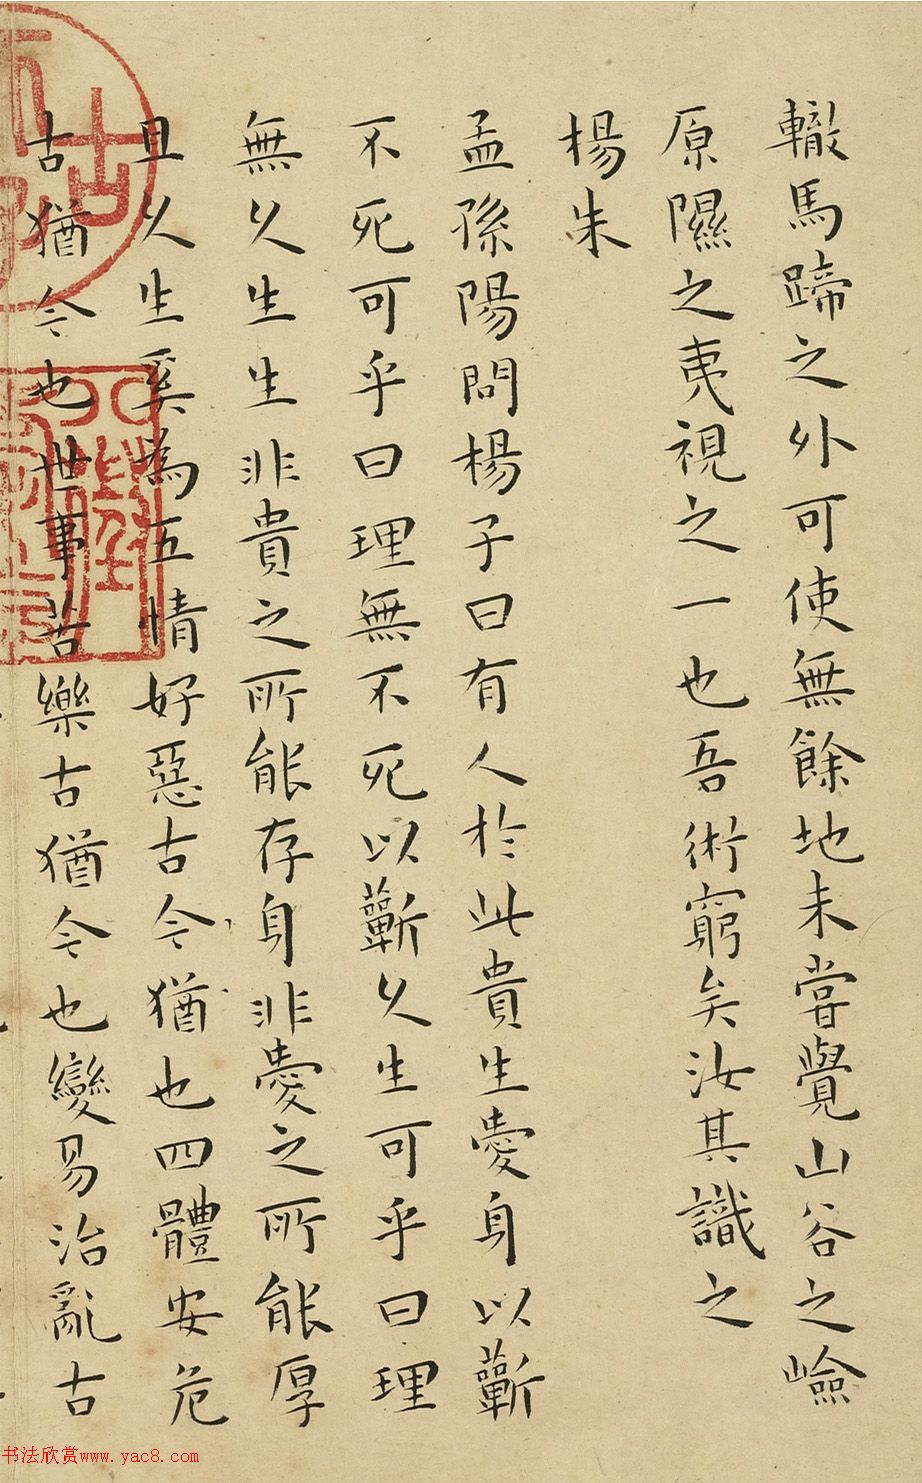 轍馬蹄之外可使無餘地未甞覺山谷之嶮
原隰之夷視之一也吾術窮矣汝其識之
楊朱
孟孫陽問楊子曰有人於此貴生愛身以蘄
不死可乎曰理無不死以蘄久生可乎曰理
無久生生非貴之所能存身非愛之所能厚
且久生奚為五情好惡古今猶也四體安危
古猶今也世事苦樂古猶今也變易治亂古
书法欣赏www.yac8.com